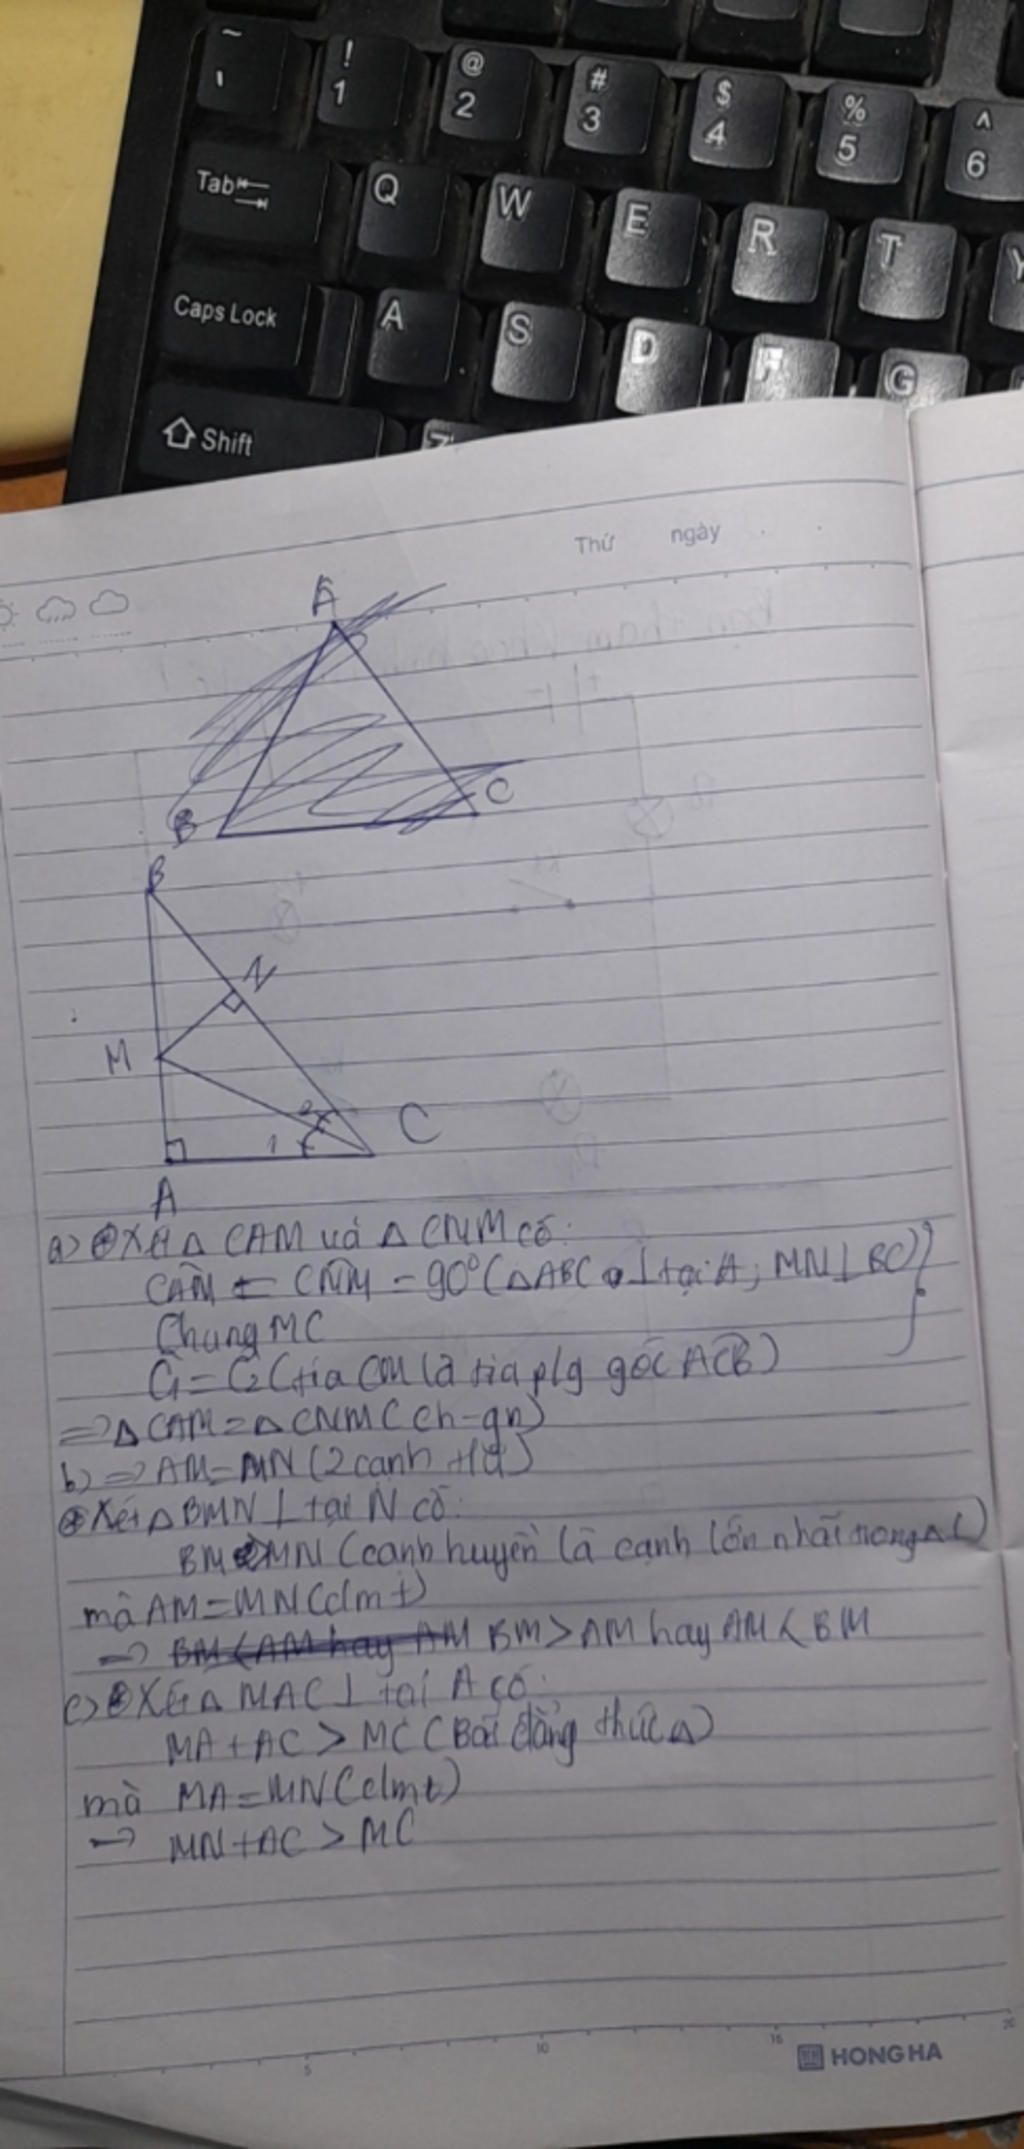 ~ ! 1 @ 2 # 3 $ 4 % 5 ^ 6
Tab Q W E R T Y
Caps Lock A S D F G
Shift Z
Thứ ngày
A
B C
B
N
M
2
1 C
A
a) Xét △ CAM và △ CNM có:
CÂM = CN̂M = 90° (△ABC ⊥ tại A; MN⊥BC)
Chung MC
Ĉ1 = Ĉ2 (tia CM là tia p/g góc ACB)
=> △ CAM = △ CNM (ch-gn)
b) => AM = MN (2 cạnh tư)
Xét △ BMN ⊥ tại N có:
BM > MN (cạnh huyền là cạnh lớn nhất trong △ ⊥)
mà AM = MN (clmt)
=> BM < AM hay AM BM > AM hay AM < BM
c) Xét △ MAC ⊥ tại A có:
MA + AC > MC (Bất đẳng thức △)
mà MA = MN (clmt)
=> MN + AC > MC
5 10 15 20
HONG HA